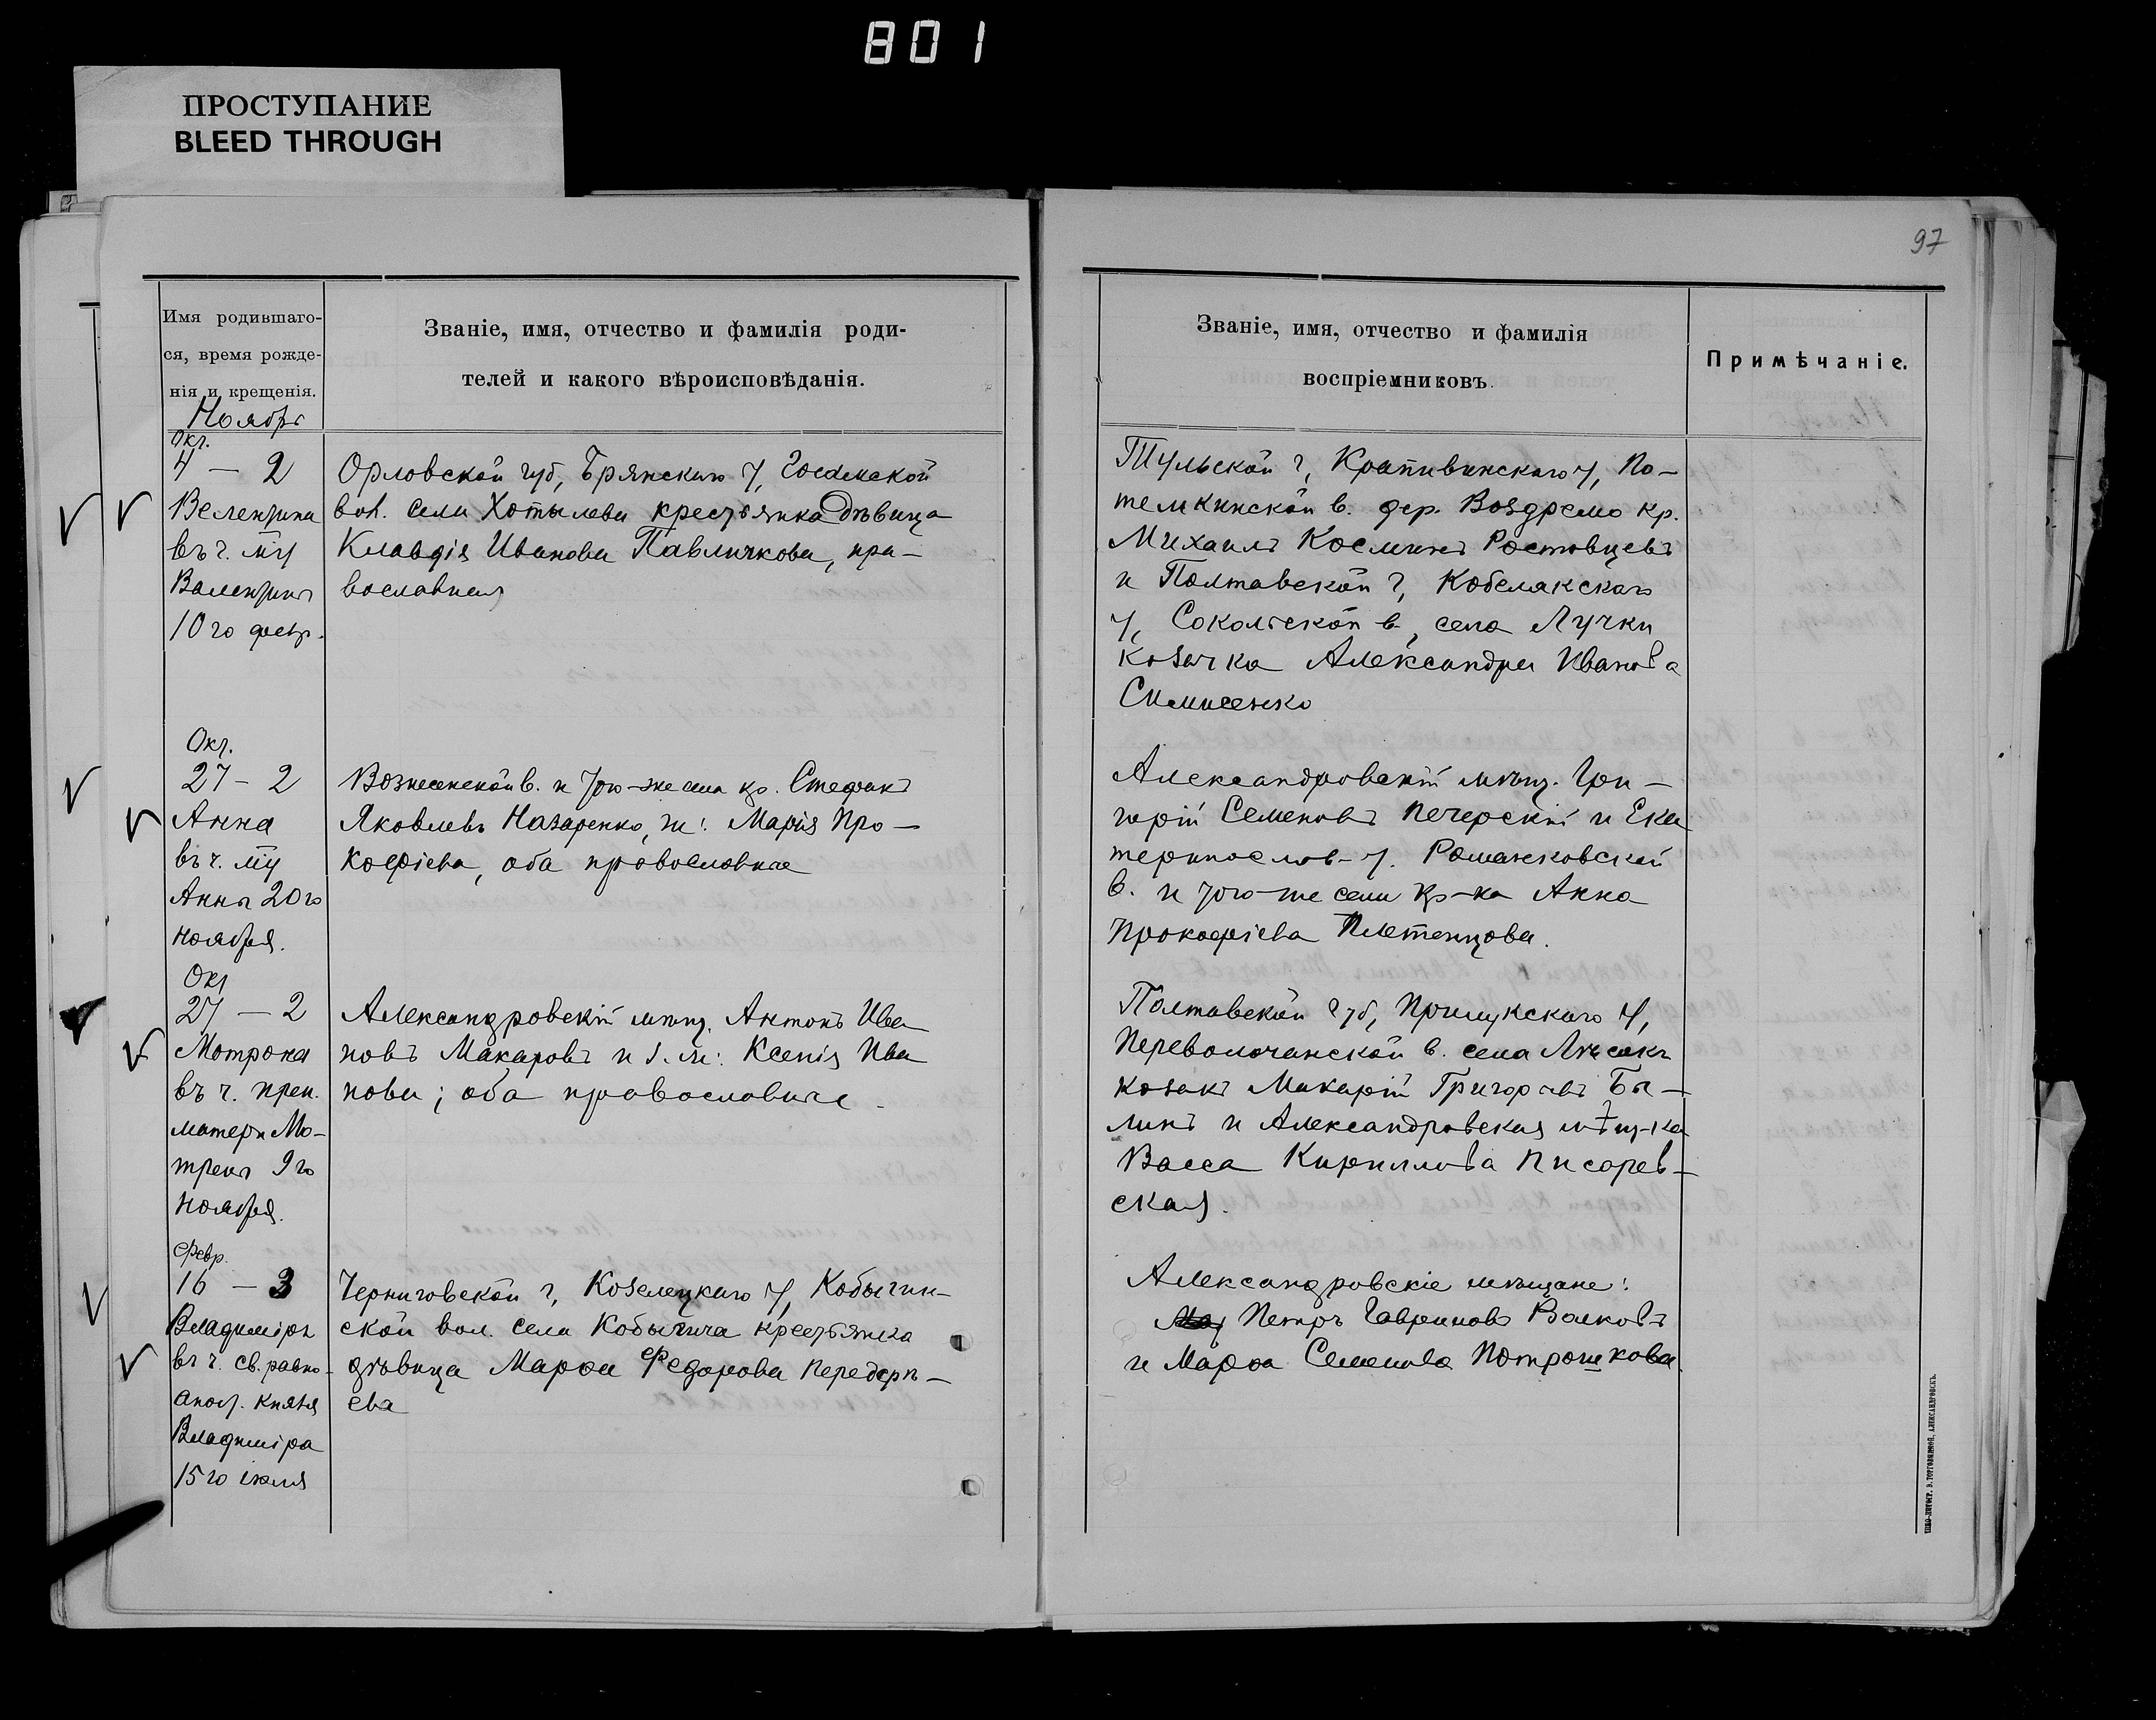 801
ПРОСТУПАНИЕ
BLEED THROUGH
97
Имя родившаго-
ся, время рожде-
нія и крещенія.
Званіе, имя, отчество и фамилія роди-
телей и какого вѣроисповѣданія.
Званіе, имя, отчество и фамилія
воспріемниковъ.
Примѣчаніе.
Ноябрь
Окт.
4 — 2
Валентина
въ ч. мц
Валентины
10го февр.
Орловской губ, Брянскаго у,
вол. села Хотылева крестьянка дѣвица
Клавдія Иванова Павличкова, пра-
вославная
Тульской г, Крапивинскаго у, По-
темкинской в. дер. Воздремо кр.
Михаилъ Косминъ Ростовцевъ
и Полтавской г, Кобелякскаго
у, Сокольской в, села Лучки
козачка Александра Иванова
Окт.
27 — 2
Анна
въ ч. мц
Анны 20го
ноября.
Вознесенской в. и того-же села кр. Стефанъ
Яковлевъ Назаренко, ж: Марія Про-
кофіева, оба православные
Александровскій мѣщ. Гри-
горій Семеновъ Печерскій и Ека
теринослав- у. Романковской
в. и того-же села кр-ка Анна
Прокофіева Плетенцова.
Окт
27 — 2
Матрона
въ ч. преп.
матери Ма-
троны 9го
ноября.
Александровскій мѣщ. Антонъ Ива
новъ Макаровъ и з. ж: Ксенія Ива
нова; оба православные.
Полтавской губ, Прилукскаго у,
Переволочанской в. села Лѣсакъ
козакъ Макарій Григорьевъ Бы-
линъ и Александровская мѣщ-ка
Васса Кириллова Писарев-
ская.
Февр.
16 — 3
Владиміръ
въ ч. св. равно-
апост. князя
Владиміра
15го іюля
Черниговской г, Козелецкаго у, Кобычин-
ской вол. села Кобычича крестьянка
дѣвица Марфа Федорова Передері-
ева
Александровскіе мѣщане:
Петръ Гавриловъ Волковъ
и Марфа Семенова Потрошкова.
ТИПО-ЛИТОГР. Э. ТОРГОВИЦКОЙ, АЛЕКСАНДРОВСКЪ.